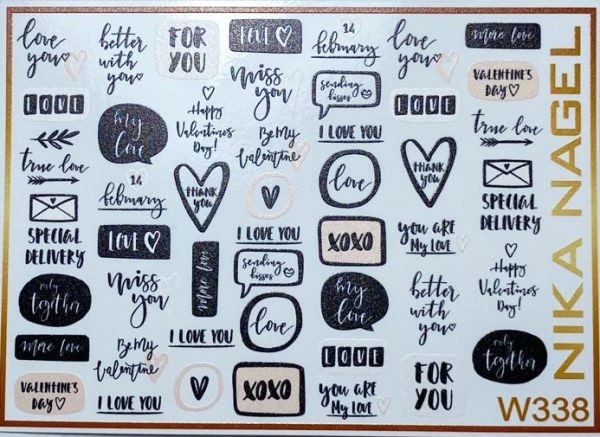 love
you
better
with
you
FOR
YOU
LOVE
14
february
love
you
more love
LOVE
my
love
miss
you
sending
kisses
LOVE
VALENTINE'S
DAY
Happy
Valentines
Day!
Be My
Valentine
I LOVE YOU
true love
true love
14
february
THANK
YOU
love
THANK
YOU
SPECIAL
DELIVERY
SPECIAL
DELIVERY
LOVE
I LOVE YOU
XOXO
you ARE
My LOVE
only
together
miss
you
more love
sending
kisses
my
love
better
with
you
Happy
Valentines
Day!
more love
Be My
Valentine
I LOVE YOU
love
LOVE
FOR
YOU
only
together
VALENTINE'S
DAY
I LOVE YOU
XOXO
you ARE
My LOVE
NIKA NAGEL
W338